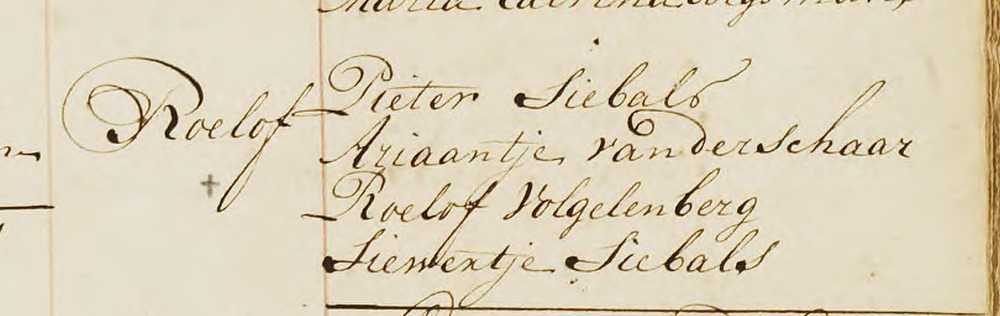 Maria Catrina
Roelof
Pieter Siebals
Ariaantje van der schaar
Roelof Volgelenberg
Siewertje Siebals